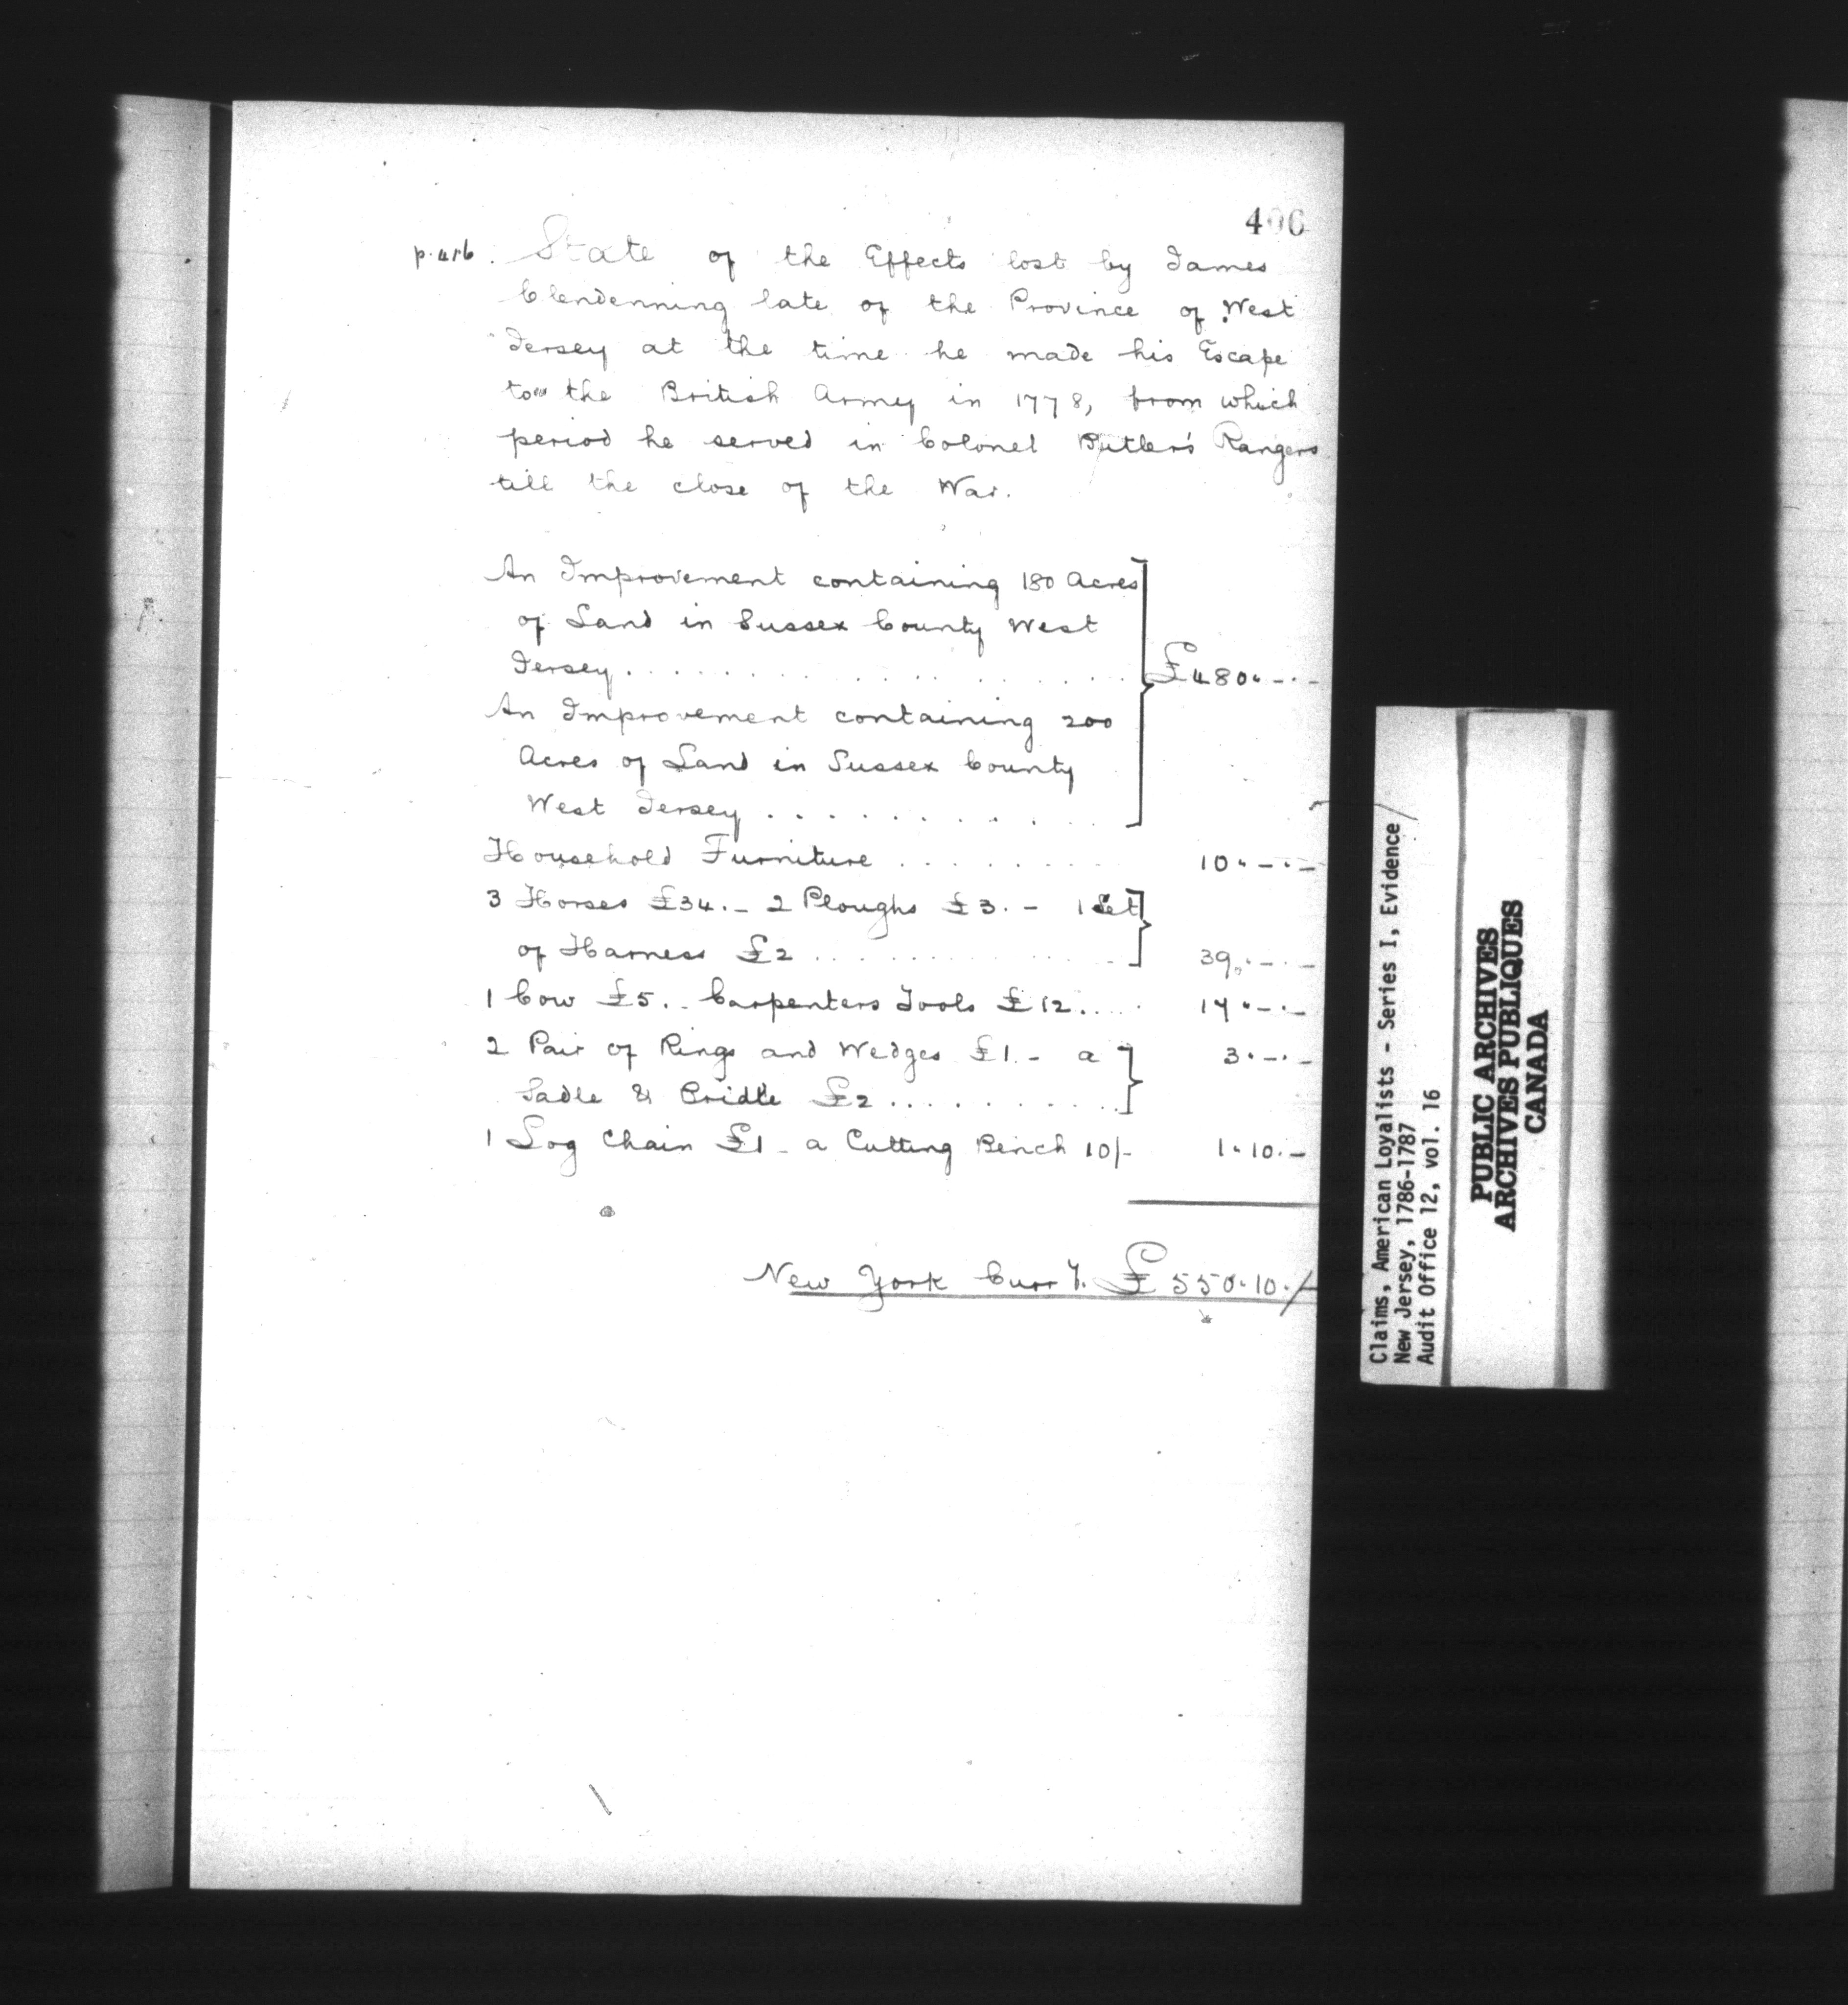 406
p. 416. State of the Effects lost by James
Clendenning late of the Province of West
Jersey at the time he made his Escape
to the British Army in 1778, from which
period he served in Colonel Butler's Rangers
till the close of the War.
An Improvement containing 180 Acres
of Land in Sussex County West
Jersey . . . . . . . . . . £480.-.-
An Improvement containing 200
Acres of Land in Sussex County
West Jersey . . . . . . . . . .
Household Furniture . . . . . . 10.-.-
3 Horses £34.- 2 Ploughs £3.- 1 Set
of Harness £2 . . . . . . . . . . 39.-.-
1 Cow £5.- Carpenters Tools £12 . . . . 17.-.-
2 Pair of Rings and Wedges £1.- a 3.-.-
Sadle & Bridle £2 . . . . . . . . . .
1 Log Chain £1 - a Cutting Bench 10/- 1.10.-
New York Curry. £550.10./-
Claims, American Loyalists - Series I, Evidence
New Jersey, 1786-1787
Audit Office 12, vol. 16
PUBLIC ARCHIVES
ARCHIVES PUBLIQUES
CANADA